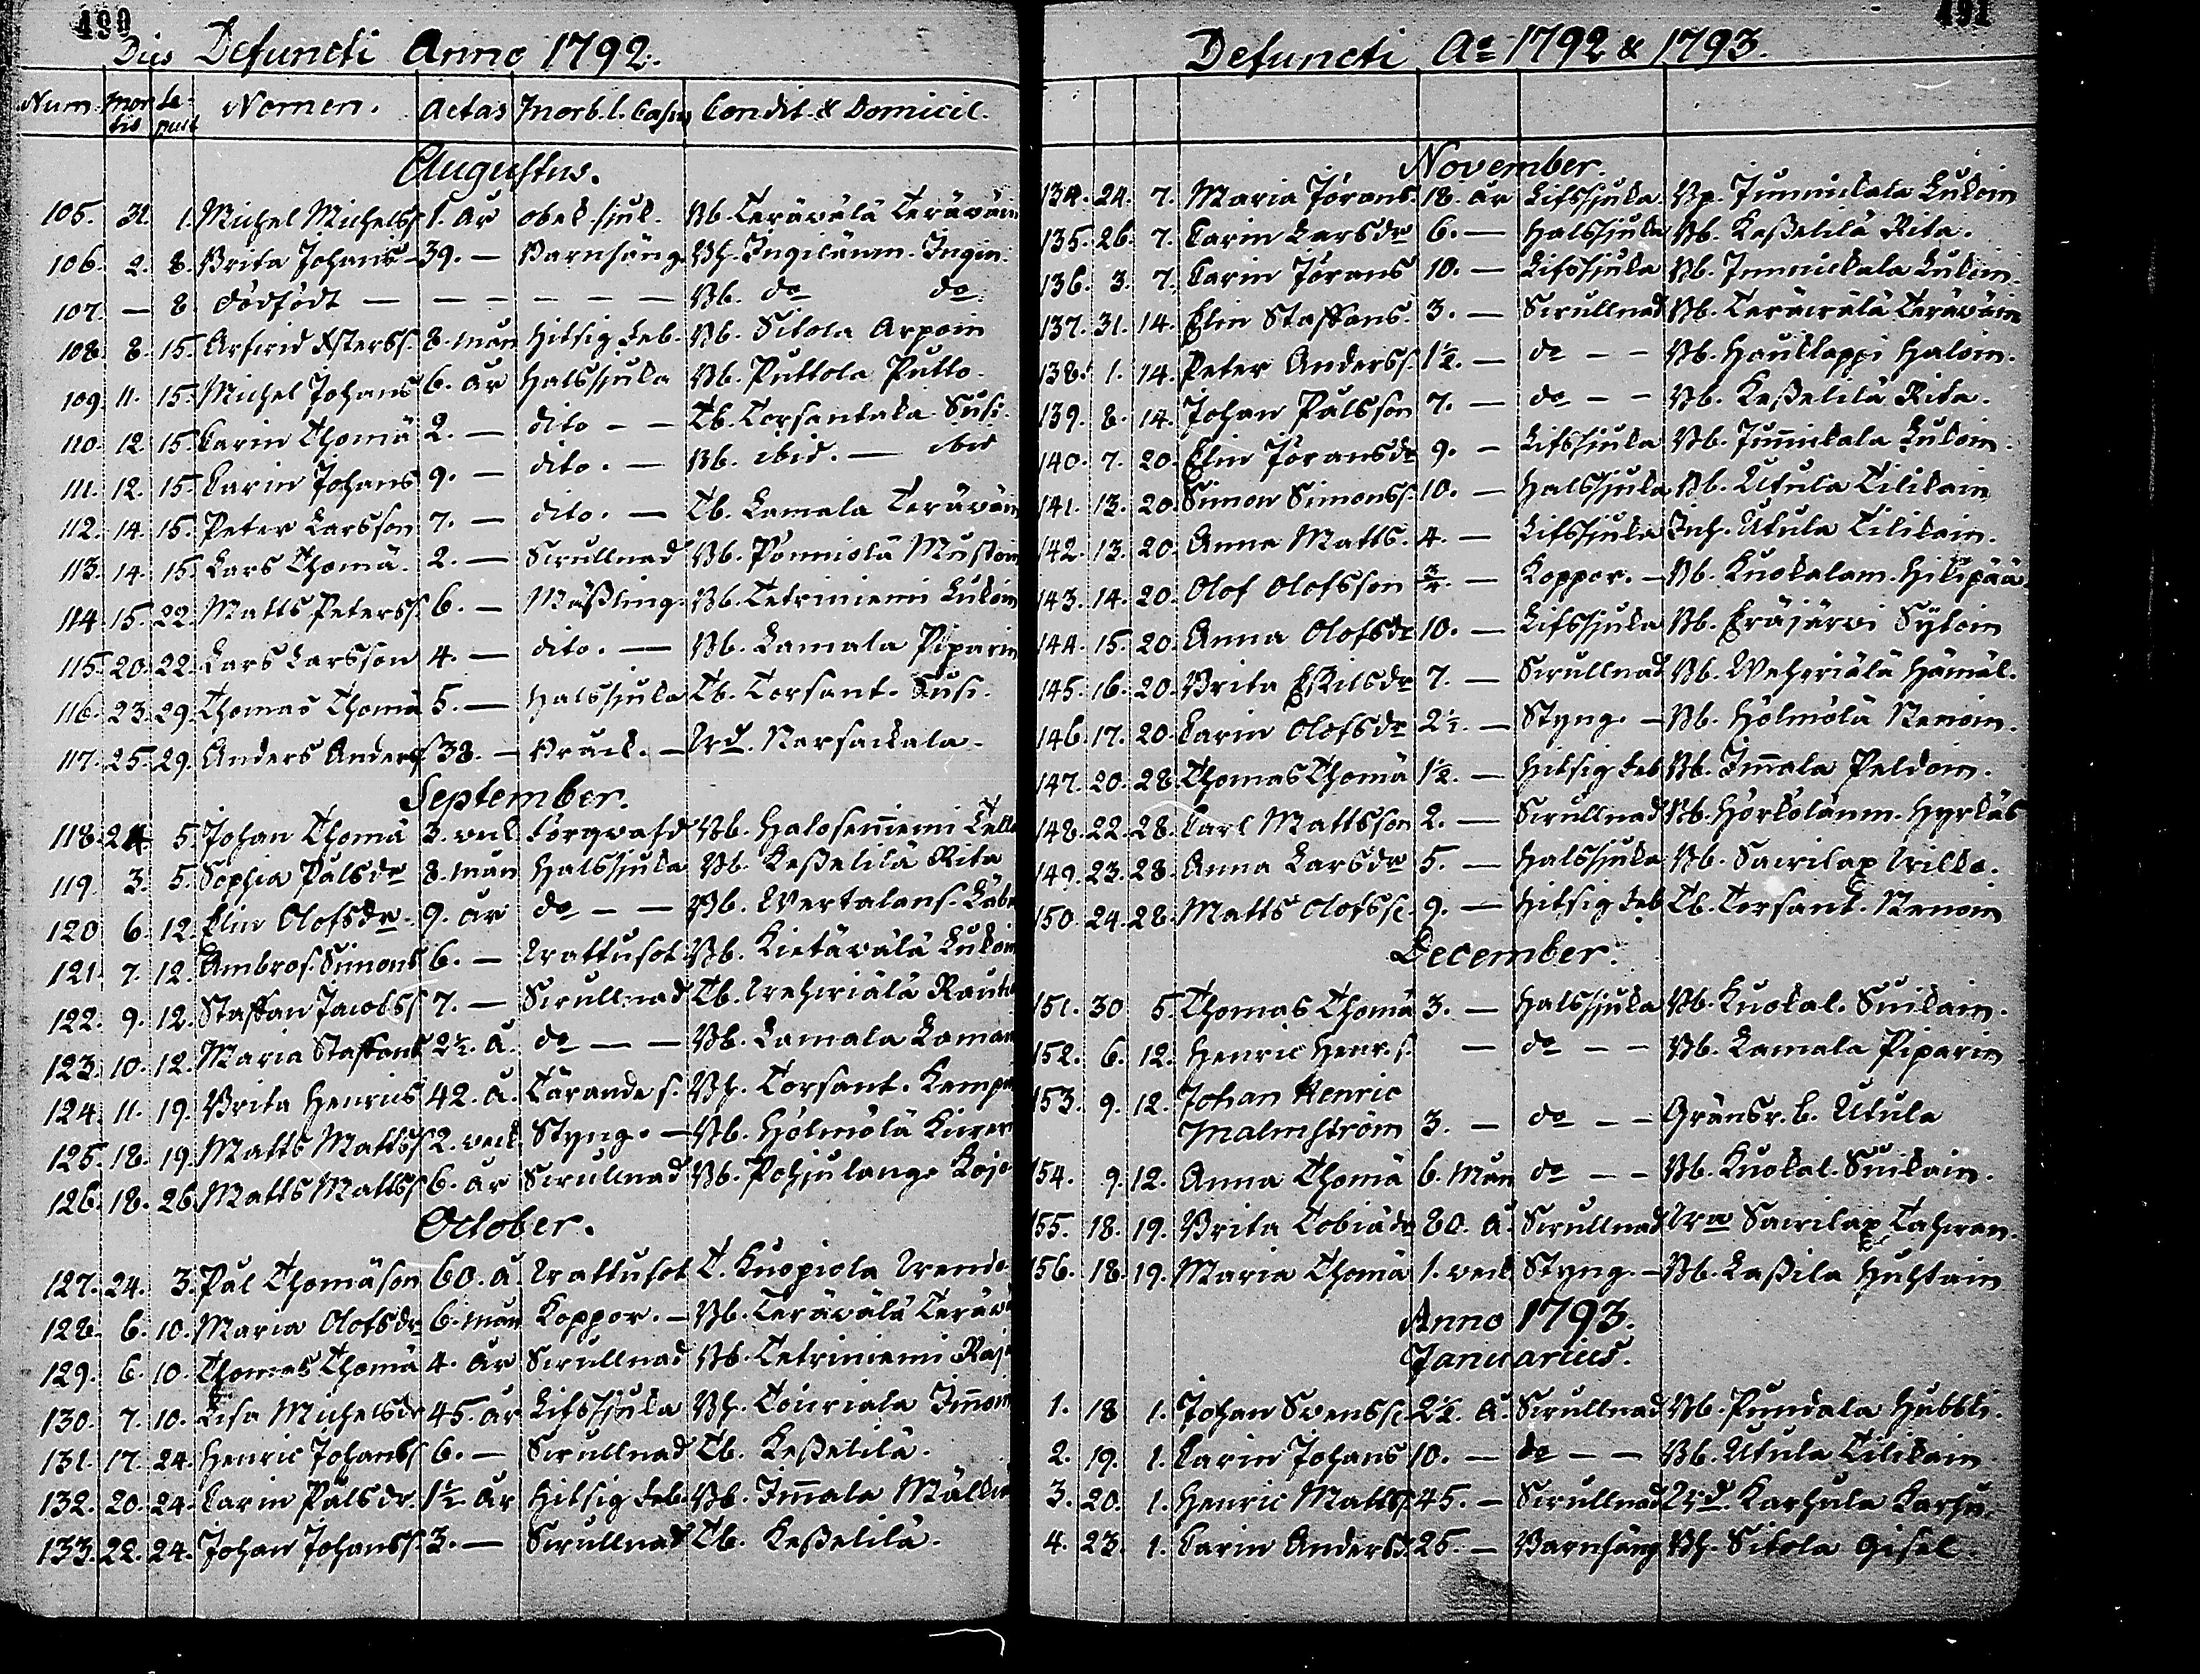 490
Dies Defuncti Anno 1792.
Num. mortis sepult Nomen. Aetas Morb. l. Casus Condit. & Domicil.
Augustus.
105. 31. 1. Michel Michelss 1. år obek. sjuk. Bb. Teräwälä Teräwäin
106. 2. 8. Brita Johans 39. — Barnsäng Bh. Ingilänm. Ingin.
107. — 8. dödfödt — — — — — — Bb. do do.
108. 8. 15. Arfwid Esterss. 8. mån hitsig feb. Bb. Sitola Arpoin
109. 11. 15. Michel Johans 6. år halssjuka Bb. Puttola Putto.
110. 12. 15. Carin Thomä 2. — dito — — Tb. Torsantaka Susi.
111. 12. 15. Carin Johans 9. — dito. — Bb. ibid. — ibid
112. 14. 15. Peter Larsson 7. — dito. — Tb. Lamala Teräwäin
113. 14. 15. Lars Thomä. 2. — Strullnad Bb. Pönniolä Mustoin
114. 15. 22. Matts Peterss. 6. — Mäßling. Bb. Tetriniemi Lukoin
115. 20. 22. Lars Larsson 4. — dito. — Bb. Lamala Piparin
116. 23. 29. Thomas Thomä 5. — halssjuka Tb. Torsant. Susi.
117. 25. 29. Anders Anderss 38. — Bråck. — Drd. Narsackala.
September.
118. 24 5. Johan Thomä 3. veck. förqvafd Bb. Haloseniemi
119. 3. 5. Sophia Pålsdr 8. mån halssjuka Bb. Keßelilä Rita
120 6. 12. Elin Olofsdr. 9. år do — — Bb. Wertalans.
121. 7. 12. Ambros. Simons 6. — Wattusot Bb. Kietäwälä Lukoin
122. 9. 12. Staffan Jacobss 7. — Strullnad Tb. Wehwiälä
123. 10. 12. Maria Staffans 2½. å. do — — Bb. Lamala
124. 11. 19. Brita Henrics 42. å. Tärande s. Bh. Torsant.
125. 18. 19. Matts Mattss 2. veck. Styng. — Bb. Hölmölä
126. 18. 26. Matts Mattss 6. år Strullnad Bb. Pohjulange
October.
127. 24. 3. Pål Thomäson 60. å. Wattusot T. Kuopiola
128. 6. 10. Maria Olofsdr 6. mån Koppor. — Bb. Teräwälä
129. 6. 10. Thomas Thomä 4. år Strullnad Bb. Tetriniemi
130. 7. 10. Lisa Michelsdr 45. år Lifssjuka Bh.
131. 17. 24. Henric Johanss 6. — Strullnad Tb. Keßelilä.
132. 20. 24. Carin Pålsdr. 1½ år hitsig feb. Bb. Immala
133. 22. 24. Johan Johanss. 3. — Strullnad Tb. Keßelilä.
491
Defuncti Ao 1792 & 1793.
November.
134. 24. 7. Maria Jörans. 18. år Lifssjuka. Bp. Junnickala Lukoin
135. 26. 7. Carin Larsdr 6. — halssjuka Bb. Keßelilä Rita.
136. 3. 7. Carin Jörans 10. — Lifssjuka Bb. Junnickala Lukoin.
137. 31. 14. Elin Staffans. 3. — Strullnad Bb. Teräwälä Teräwäin
138. 1. 14. Peter Anderss. 1½. — do — — Bb. Haucklappi Haloin.
139. 8. 14. Johan Pålsson 7. — do — — Bb. Keßelilä Rita.
140. 7. 20. Elin Jöransdr 9. — Lifssjuka Bb. Junnikala Lukoin.
141. 13. 20 Simon Simonss. 10. — halssjuka Bb. Utula Tilikain
142. 13. 20. Anna Matts. 4. — Lifssjuka Inh. Utula Tilikain.
143. 14. 20. Olof Olofsson ¾. — Koppor. — Bb. Kuokalam. Hilipää
144. 15. 20. Anna Olofsdr 10. — Lifssjuka Bb. Eräjärwi
145. 16. 20. Brita Eskilsdr 7. — Strullnad Bb. Wehwiälä Hämäl.
146. 17. 20. Carin Olofsdr 2½. — Styng. — Bb. Hölmölä Nenoin.
147. 20. 28. Thomas Thomä 1½. — hitsig feb Bb. Immala Peldoin.
148. 22. 28. Carl Mattsson 2. — Strullnad Bb. Hörkölänm. Hyrkäs
149. 23. 28. Anna Larsdr 5. — halssjuka Bb. Sawilax Wilko.
150. 24. 28. Matts Olofss. 9. — hitsig feb Tb. Torsant. Nenoin
December.
151. 30 5. Thomas Thomä 3. — halssjuka Bb. Kuokal. Suikain.
152. 6. 12. Henric Henr. s. — do — — Bb. Lamala Piparin
153. 9. 12. Johan Henric
Malmström 3. — do — — Gränsr. b. Utula
154. 9. 12. Anna Thomä 6. mån do — — Bb. Kuokal. Suikain.
155. 18. 19. Brita Tobiädr 80. å. Strullnad Wa Sawilax
156. 18. 19. Maria Thomä 1. veck Styng. — Bb. Laßila Huhtain
Anno 1793.
Januarius.
1. 18 1. Johan Svenss. 2½. å. Strullnad Bb. Pundala
2. 19. 1. Carin Johans 10. — do — — Bb. Utula Tilikain
3. 20. 1. Henric Mattss. 45. — Strullnad Drd. Karhula Karhu.
4. 23. 1. Carin Andersd. 25. — Barnsäng Bh. Sitola Gisel.